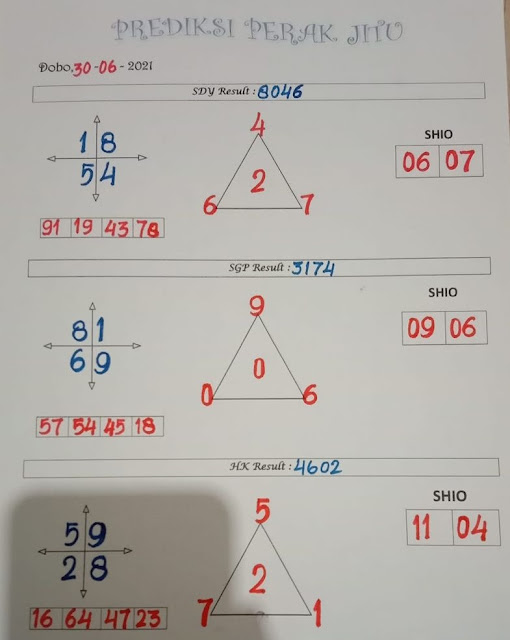 PREDIKSI PERAK JITU
Dobo, 30-06-2021
SDY Result : 8046
1 8
5 4
4
2
6 7
SHIO
06 07
91 19 43 78
SGP Result : 3174
8 1
6 9
9
0
0 6
SHIO
09 06
57 54 45 18
HK Result : 4602
5 9
2 8
5
2
7 1
SHIO
11 04
16 64 47 23